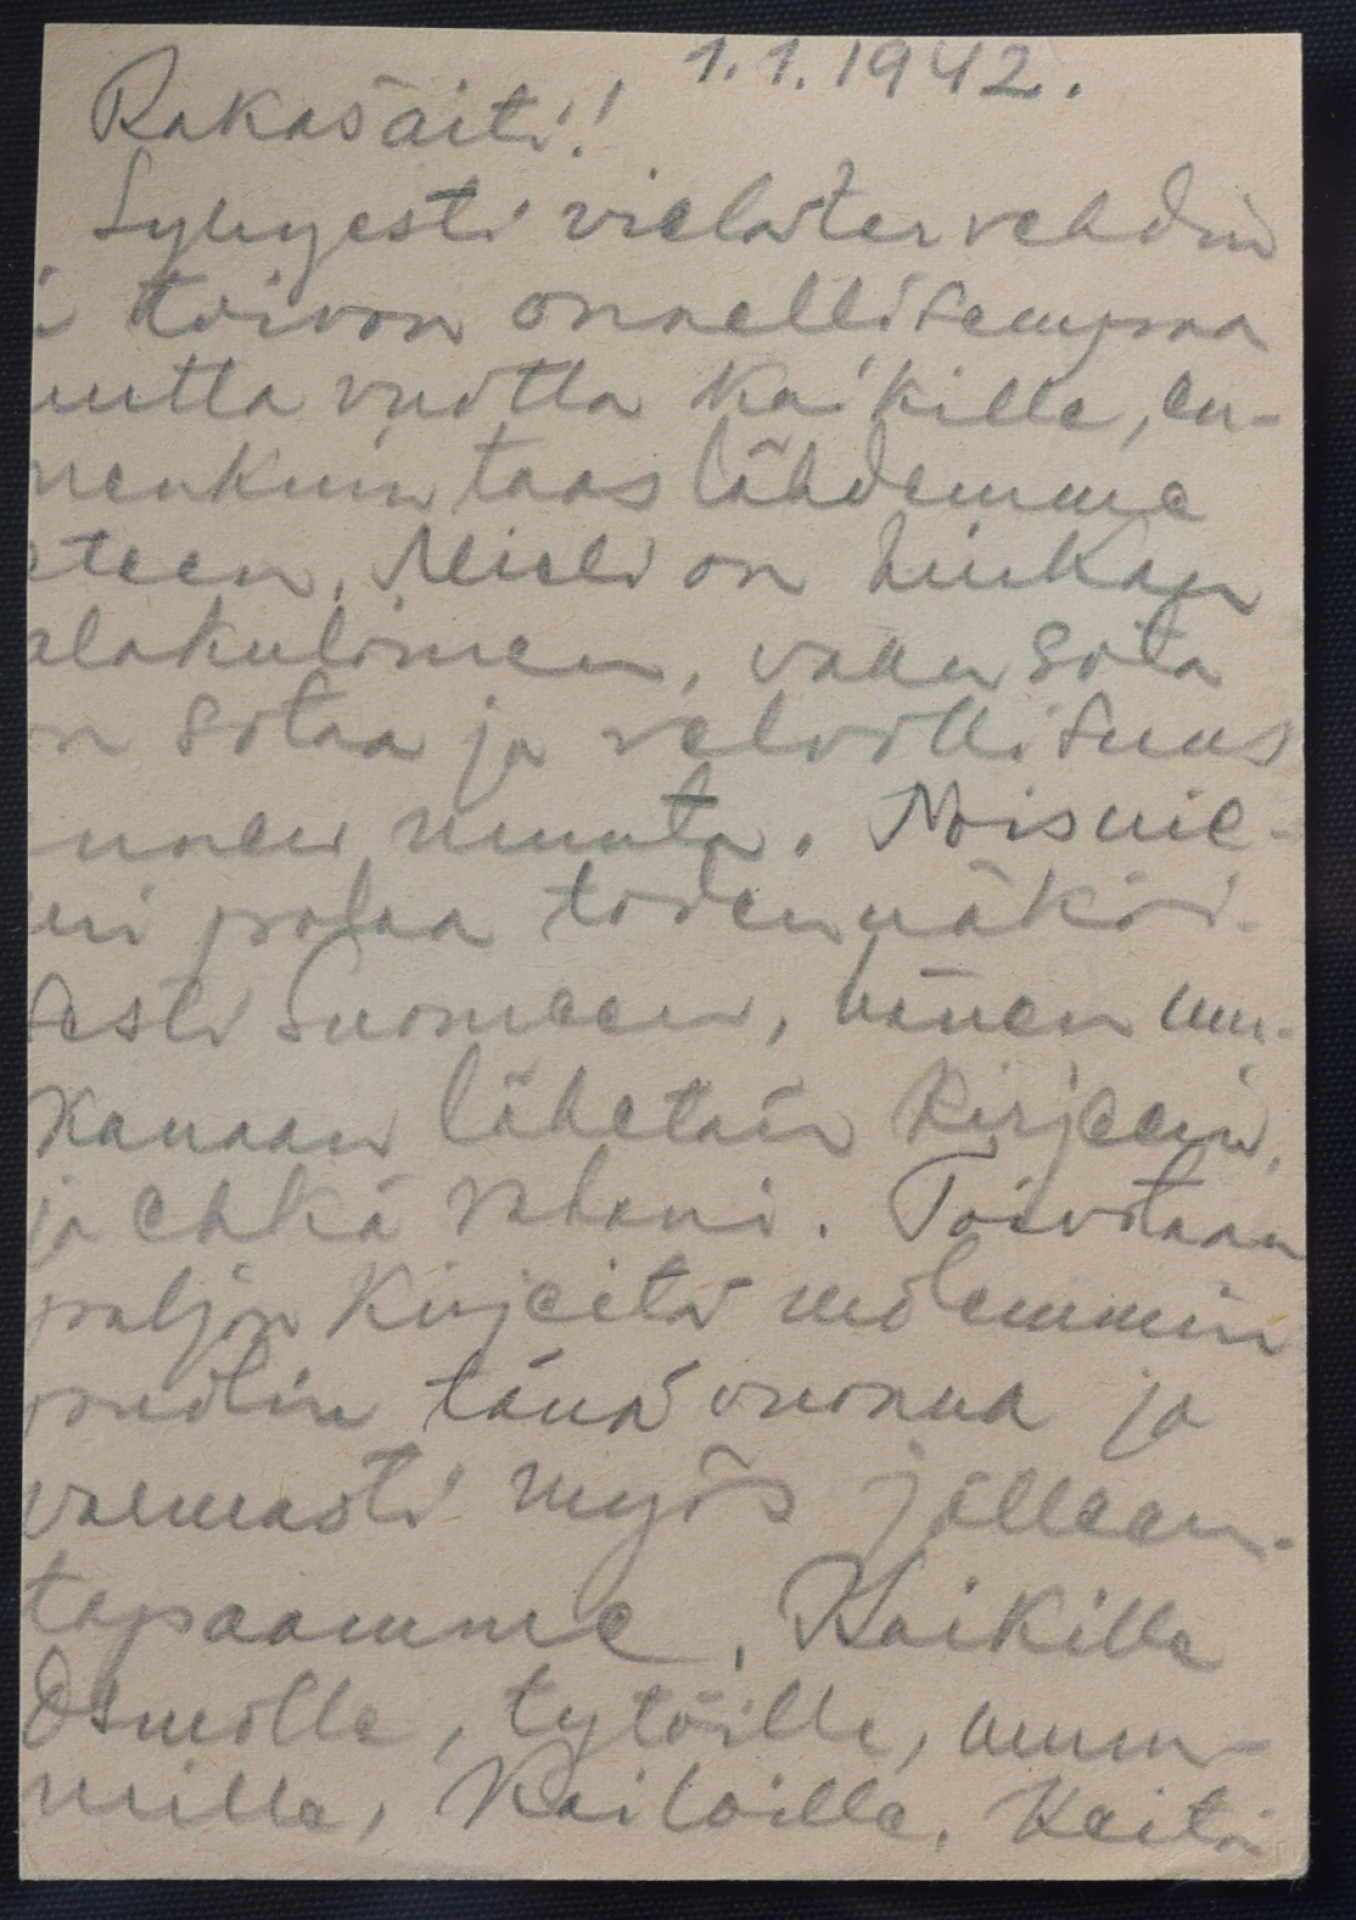 1.1.1942.
Rakas äiti!
Lyhyesti vielä tervehdin
i toivon onnellisempaa
uutta vuotta kaikille, en-
nenkuin taas lähdemme
teen. Mieli on hiukan
alakuloinen, vaan sota
on sotaa ja velvollisuus
ennen muuta. Noisnie-
mi palaa todennäköi-
sesti Suomeen, hänen mu-
kanaan lähetän kirjeen,
ja ehkä rahani. Toivotaan
paljon kirjeitä molemmin
puolin tänä vuonna ja
varmasti myös jälleen-
tapaamme. Kaikille
Osmolle, tytöille, mum-
mille, Kailoille, Keitä